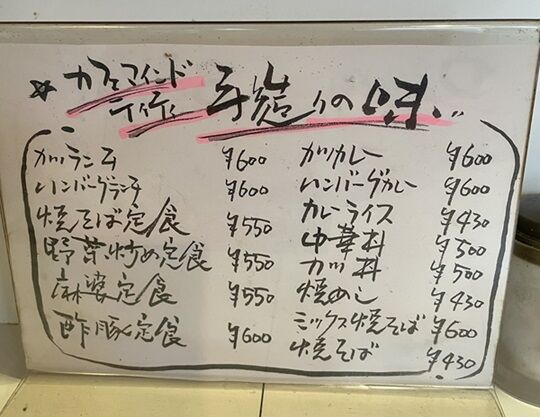 ☆ カフェマインド
ティティ 手造りの味
カツランチ ¥600
ハンバーグランチ ¥600
焼そば定食 ¥550
野菜炒め定食 ¥550
麻婆定食 ¥550
酢豚定食 ¥600
カツカレー ¥600
ハンバーグカレー ¥600
カレーライス ¥430
中華丼 ¥500
カツ丼 ¥500
焼めし ¥430
ミックス焼そば ¥600
焼そば ¥430